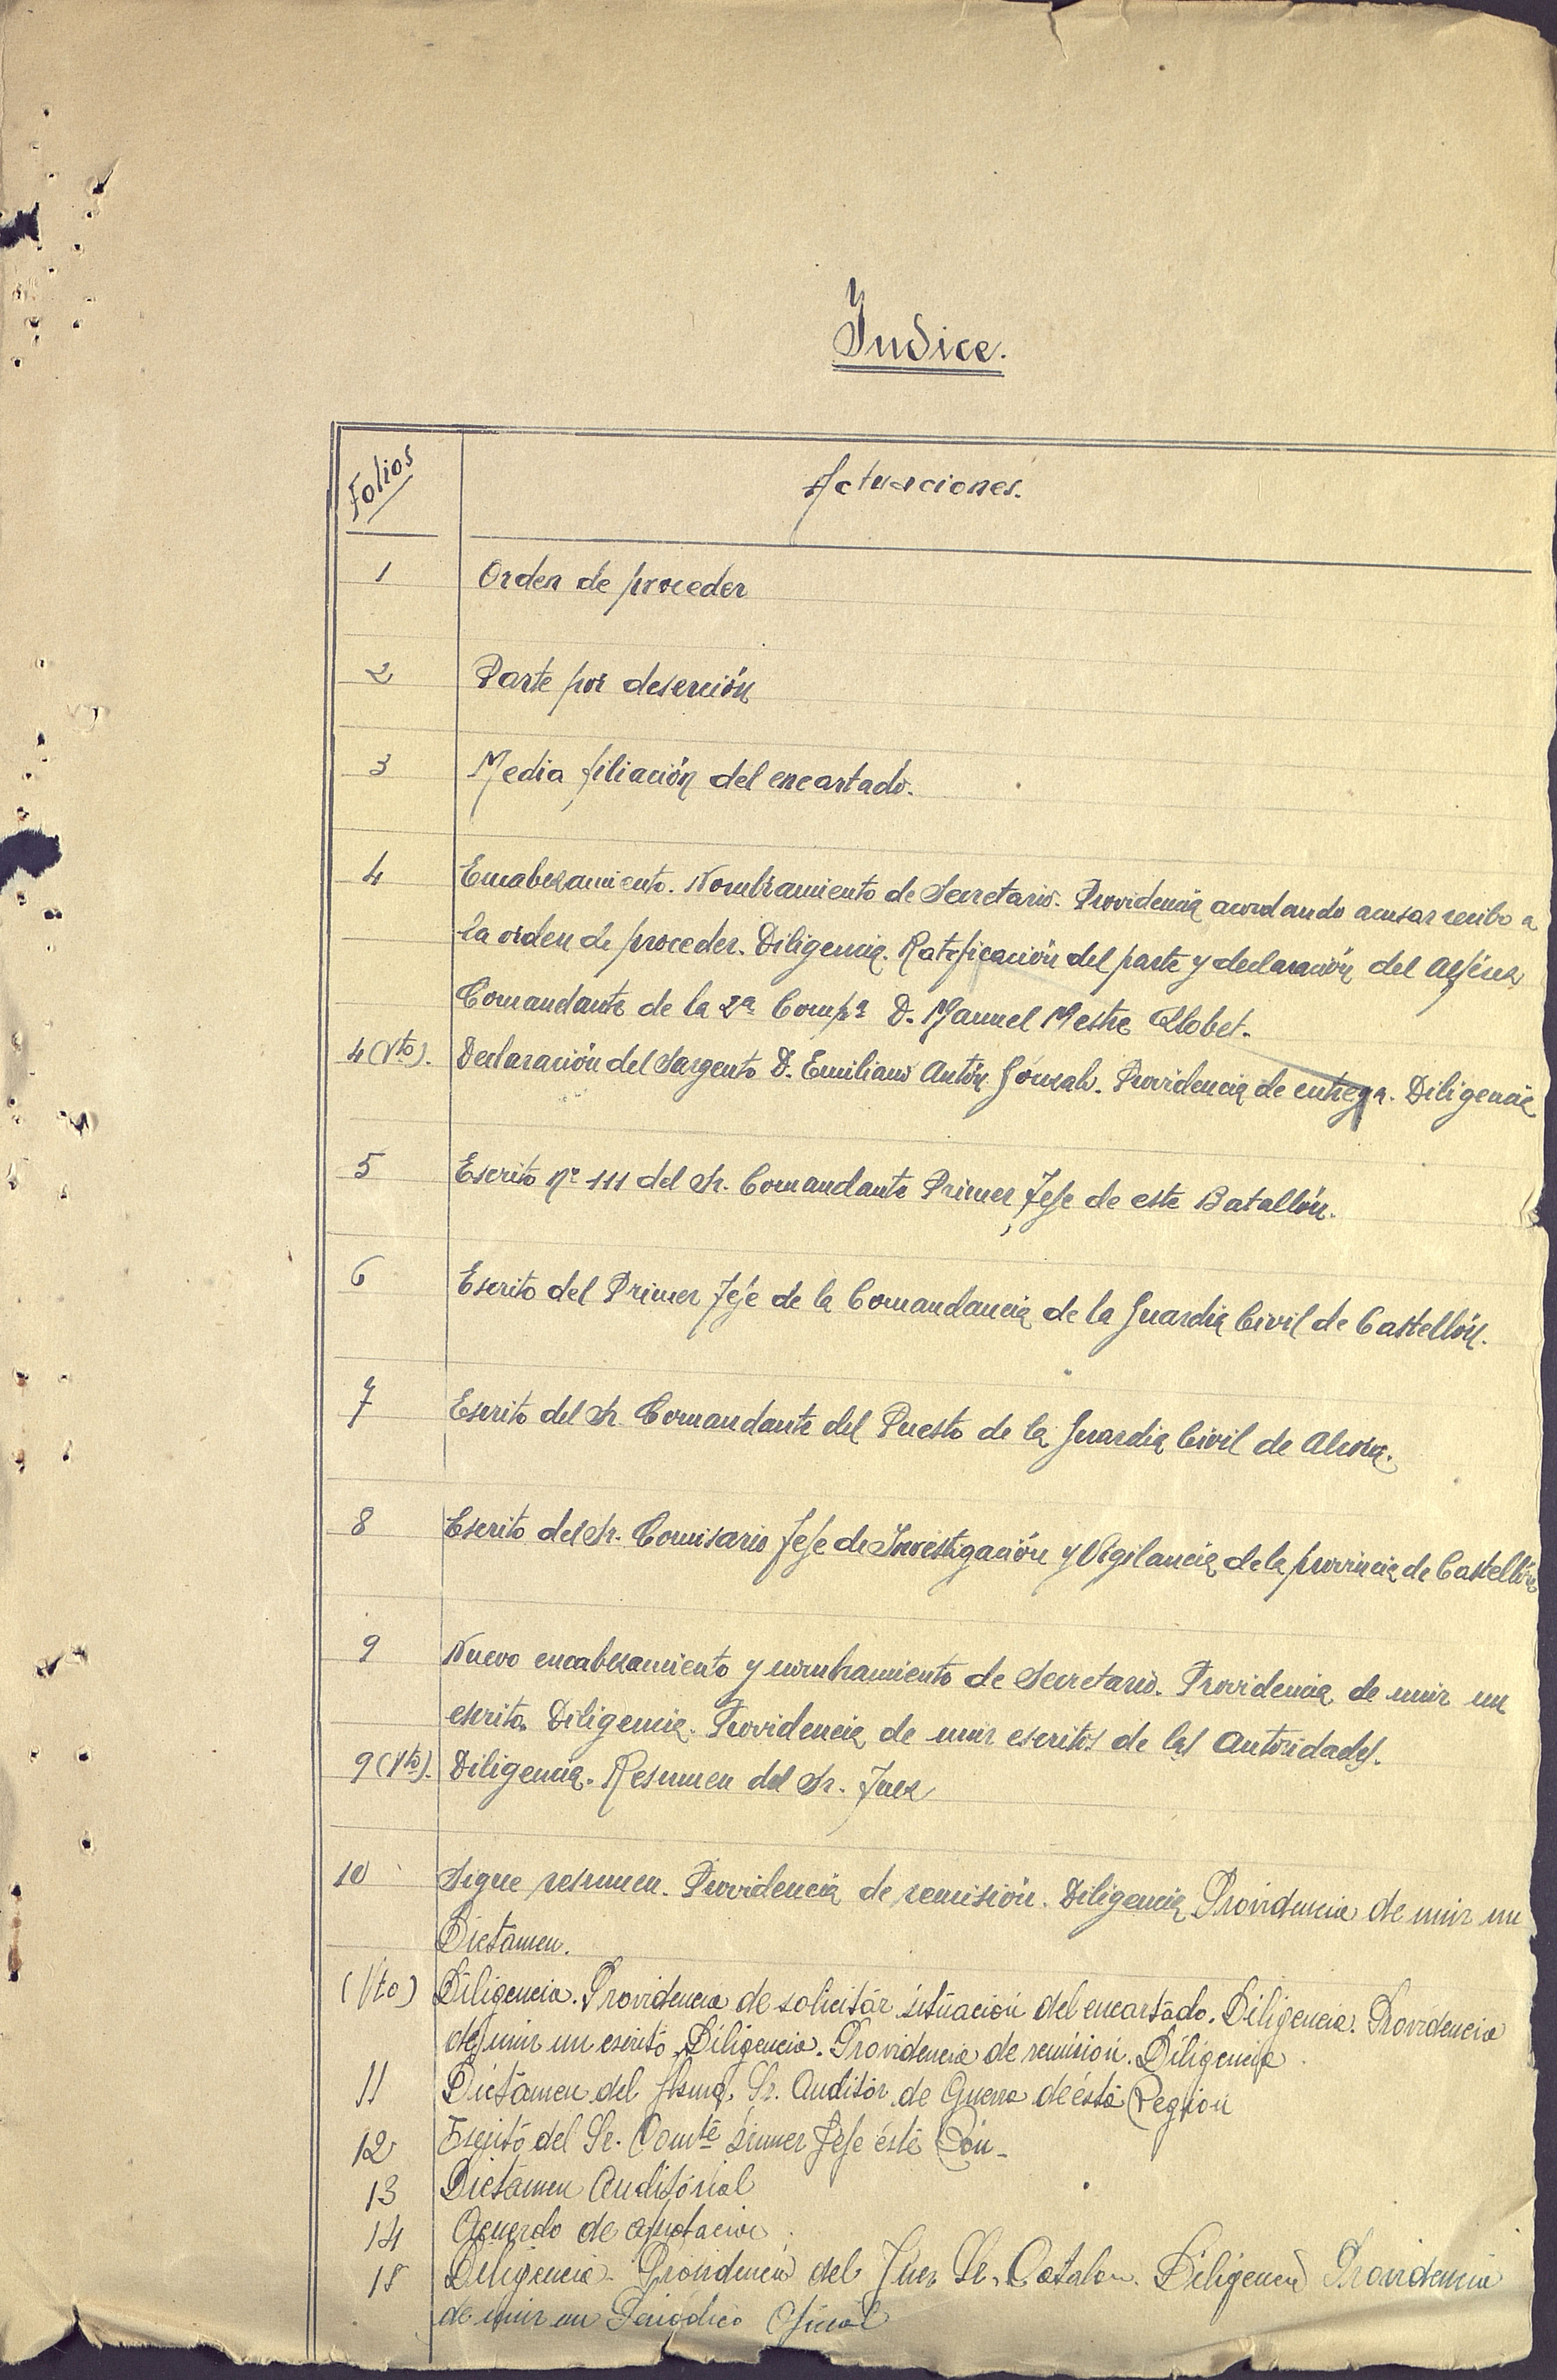 Indice.
Folios Actuaciones.
1 Orden de proceder
2 Parte por deserción
3 Media filiación del encartado.
4 Encabezamiento. Nombramiento de Secretario. Providencia acordando acusar recibo a
la orden de proceder. Diligencia. Ratificación del parte y declaración del Alférez
Comandante de la 2ª Compª D. Manuel Mestre Llobet.
4 (Vto). Declaración del Sargento D. Emiliano Antón Gonzalo. Providencia de entrega. Diligencia
5 Escrito nº 111 del Sr. Comandante Primer Jefe de este Batallón.
6 Escrito del Primer Jefe de la Comandancia de la Guardia Civil de Castellón.
7 Escrito del Sr. Comandante del Puesto de la Guardia Civil de Alcora.
8 Escrito del Sr. Comisario Jefe de Investigación y Vigilancia de la provincia de Castellón
9 Nuevo encabezamiento y nombramiento de Secretario. Providencia de unir un
escrito. Diligencia. Providencia de unir escritos de las Autoridades.
9 (Vto). Diligencia. Resumen del Sr. Juez
10 Sigue resumen. Providencia de remisión. Diligencia Providencia de unir un
Dictámen.
(Vto) Diligencia. Providencia de solicitár situación del encartado. Diligencia. Providencia
de unir un escrito. Diligencia. Providencia de remisión. Diligencia
11 Dictámen del Ilsmo. Sr. Auditór de Guerra de ésta Región
12 Escritó del Sr. Comte Primer Jefe éste Bón.
13 Dictámen Auditóriál
14 Acuerdo de
15 Diligencia. Providencia del Juez Sr. Catalan. Diligencia Providencia
de unir un Periodico Oficiál